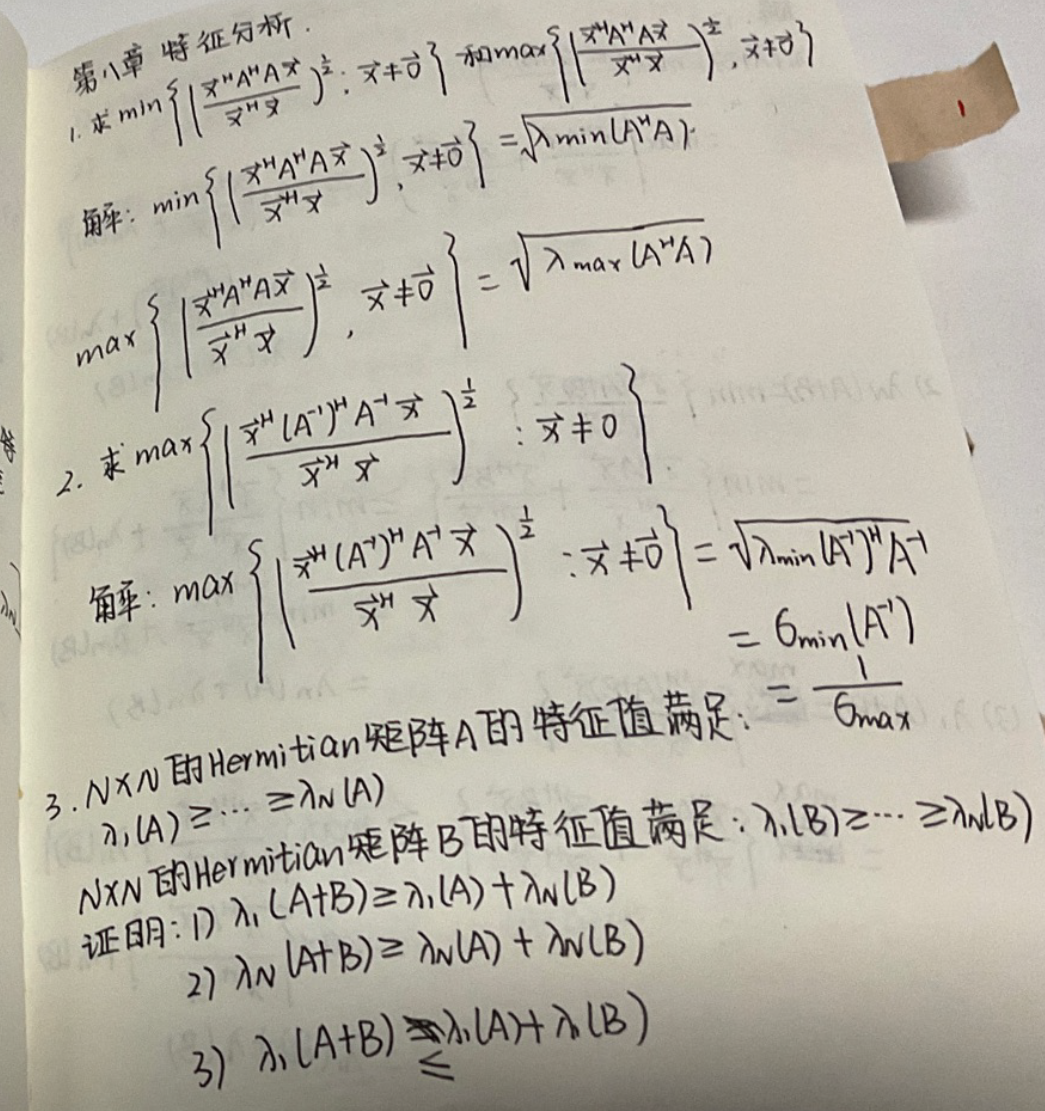 第八章 特征分析.
1. 求 min{(x⃗ᴴAᴴAx⃗ / x⃗ᴴx⃗)^½ : x⃗≠0⃗} 和 max{(x⃗ᴴAᴴAx⃗ / x⃗ᴴx⃗)^½, x⃗≠0⃗}
解: min{(x⃗ᴴAᴴAx⃗ / x⃗ᴴx⃗)^½, x⃗≠0⃗} = √(λmin(AᴴA))
max{(x⃗ᴴAᴴAx⃗ / x⃗ᴴx⃗)^½, x⃗≠0⃗} = √(λmax(AᴴA))
2. 求 max{(x⃗ᴴ(A⁻¹)ᴴA⁻¹x⃗ / x⃗ᴴx⃗)^½ : x⃗≠0}
解: max{(x⃗ᴴ(A⁻¹)ᴴA⁻¹x⃗ / x⃗ᴴx⃗)^½ : x⃗≠0⃗} = √(λmin(A⁻¹)ᴴA⁻¹)
= 6min(A⁻¹)
= 1/6max
3. N×N的Hermitian矩阵A的特征值满足:
λ₁(A)≥⋯≥λN(A)
N×N的Hermitian矩阵B的特征值满足: λ₁(B)≥⋯≥λN(B)
证明: 1) λ₁(A+B)≥λ₁(A)+λN(B)
2) λN(A+B)≥λN(A)+λN(B)
3) λ₁(A+B)≤λ₁(A)+λ₁(B)